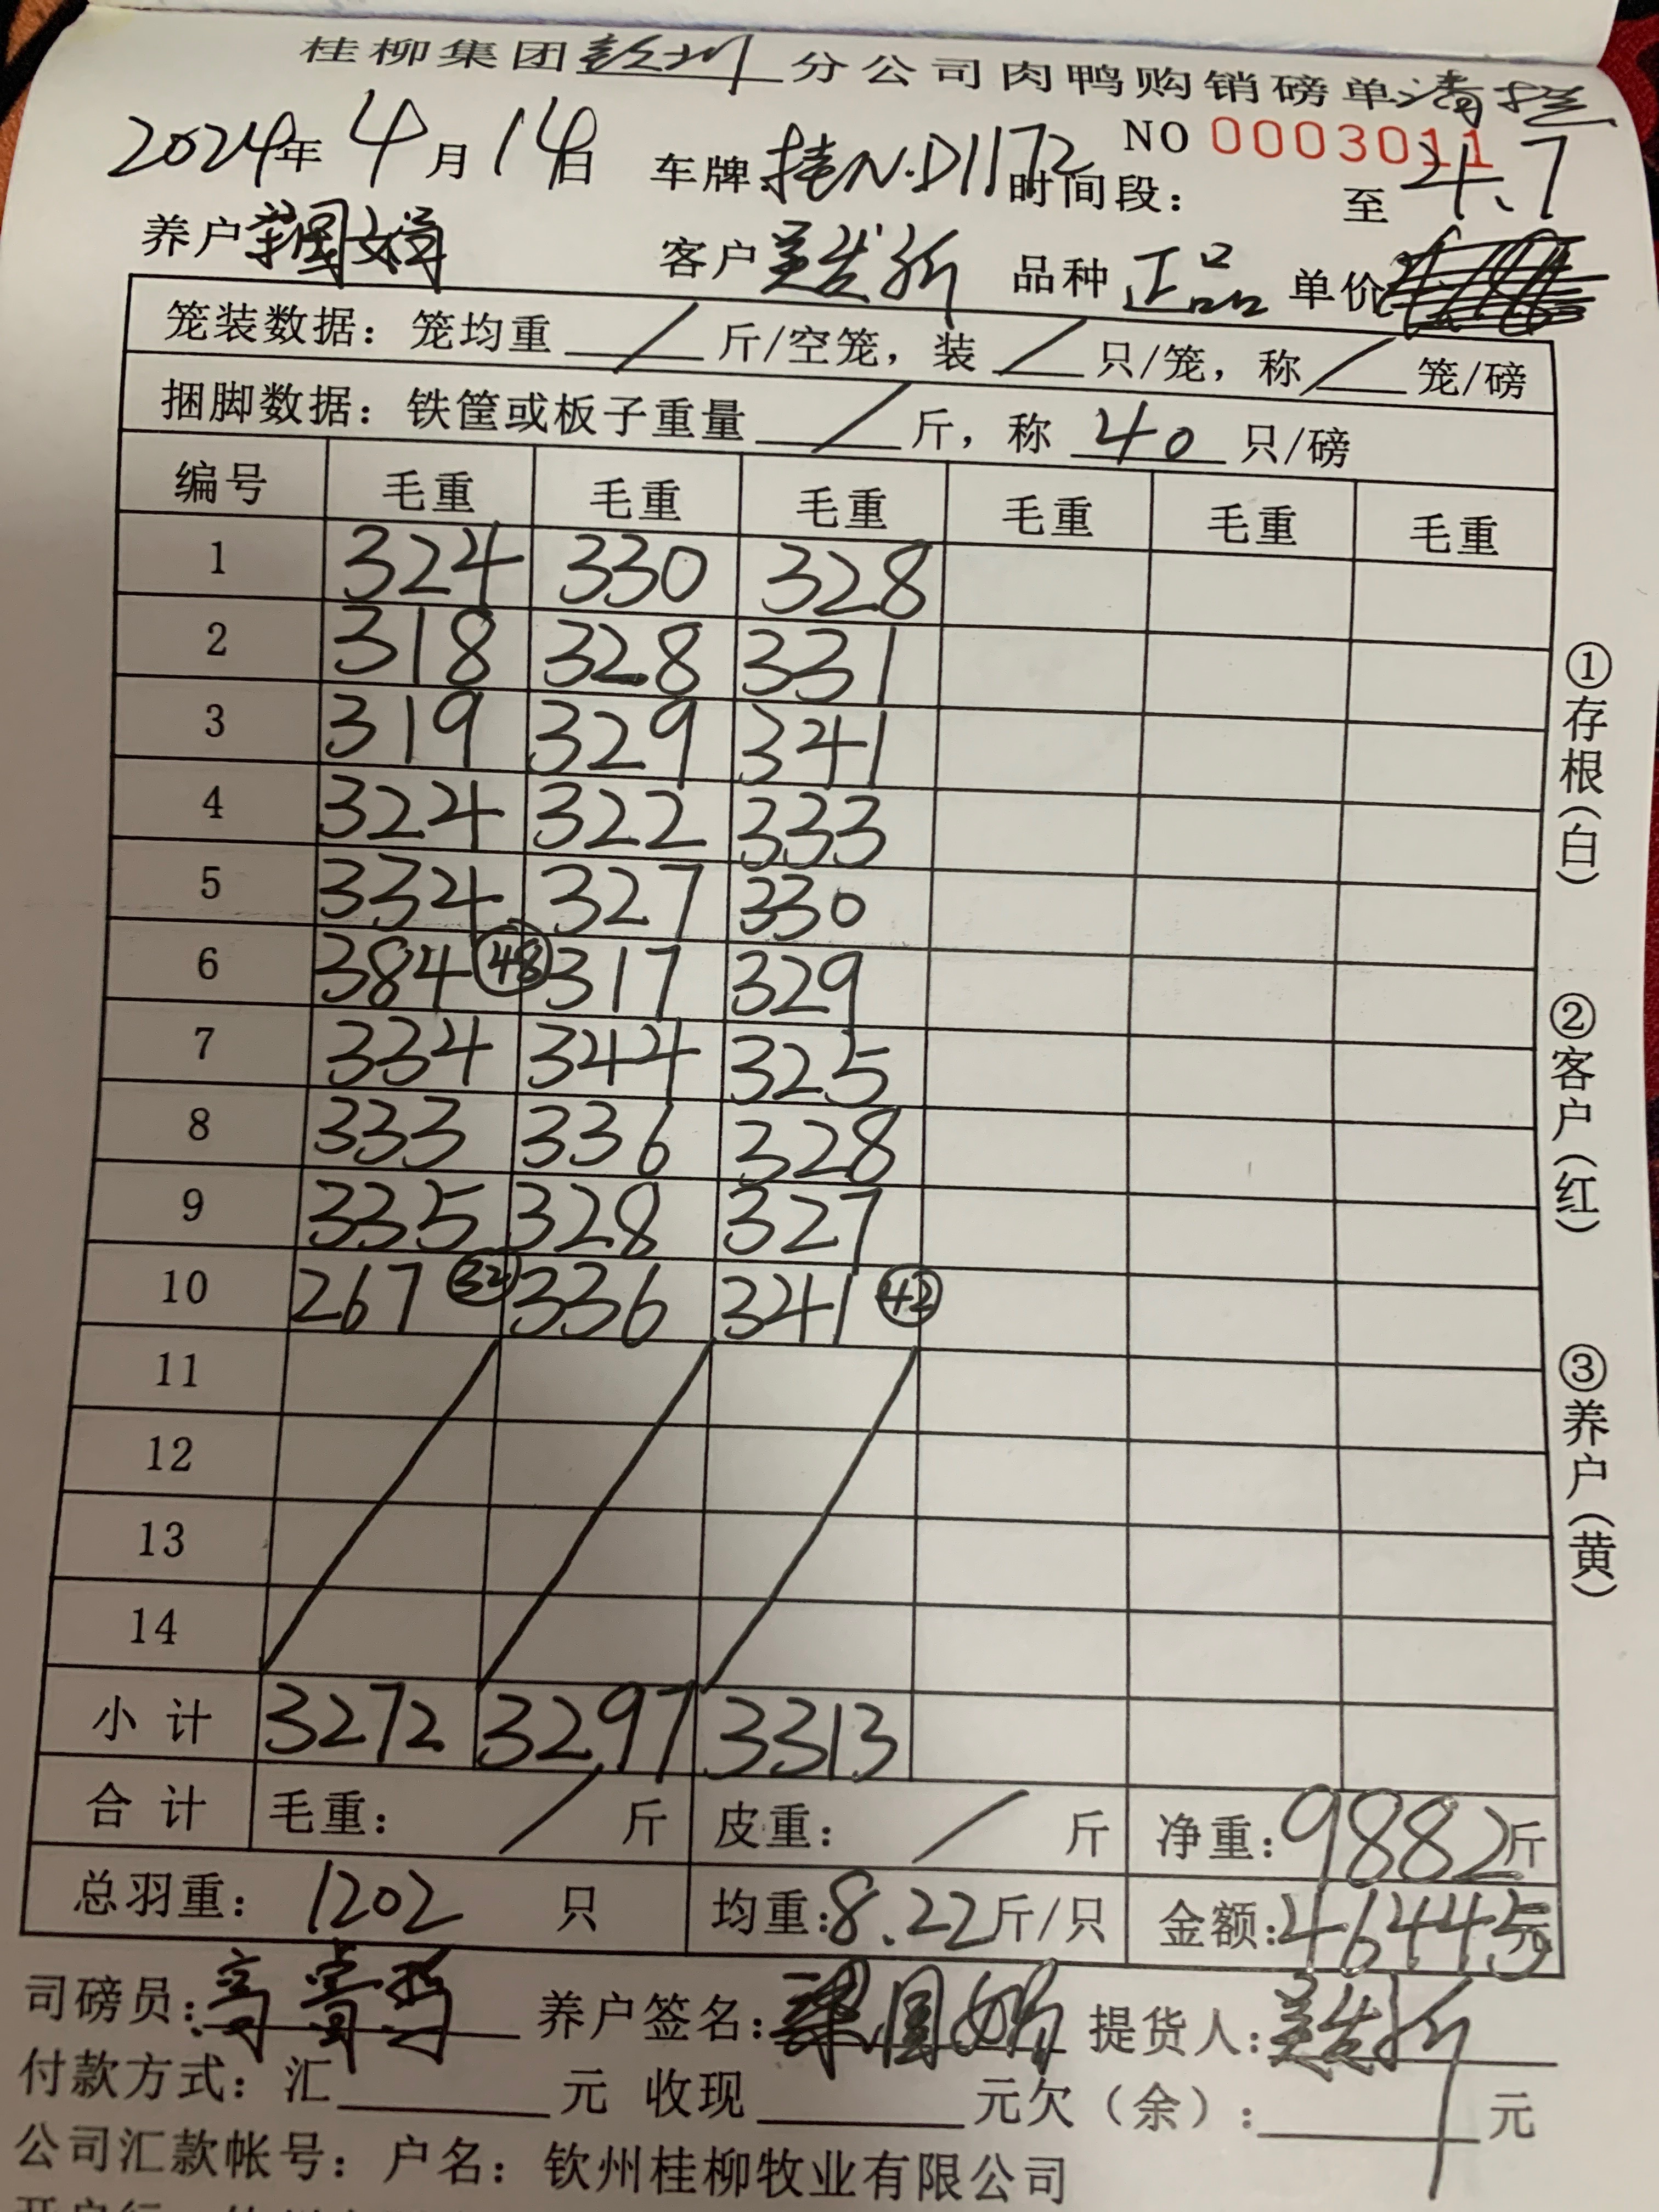 桂柳集团钦州分公司肉鸭购销磅单清栏
NO 0003011
2024年4月14日 车牌:桂N·D1172 时间段: 至4.7
养户 客户 品种正品 单价
笼装数据：笼均重 / 斤/空笼，装 / 只/笼，称 / 笼/磅
捆脚数据：铁筐或板子重量 / 斤，称 40 只/磅
编号 毛重 毛重 毛重 毛重 毛重 毛重
1 324 330 328
2 318 328 331
3 319 329 341
4 324 322 333
5 334 327 330
6 384 ㊽ 317 329
7 334 344 325
8 333 336 328
9 335 328 327
10 267 ㉜ 336 341 ㊷
11
12
13
14
小计 3272 3297 3313
合计 毛重： / 斤 皮重： / 斤 净重：9882斤
总羽重：1202 只 均重：8.22斤/只 金额：46445元
司磅员： 养户签名： 提货人：
付款方式：汇 元 收现 元欠（余）： 元
公司汇款帐号：户名：钦州桂柳牧业有限公司
①存根（白）
②客户（红）
③养户（黄）